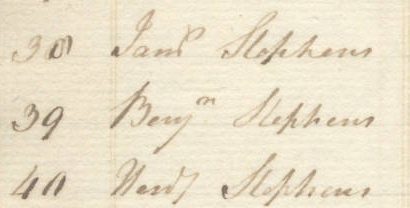 38 Jams Stephens
39 Benjn Stephens
40 Stephens